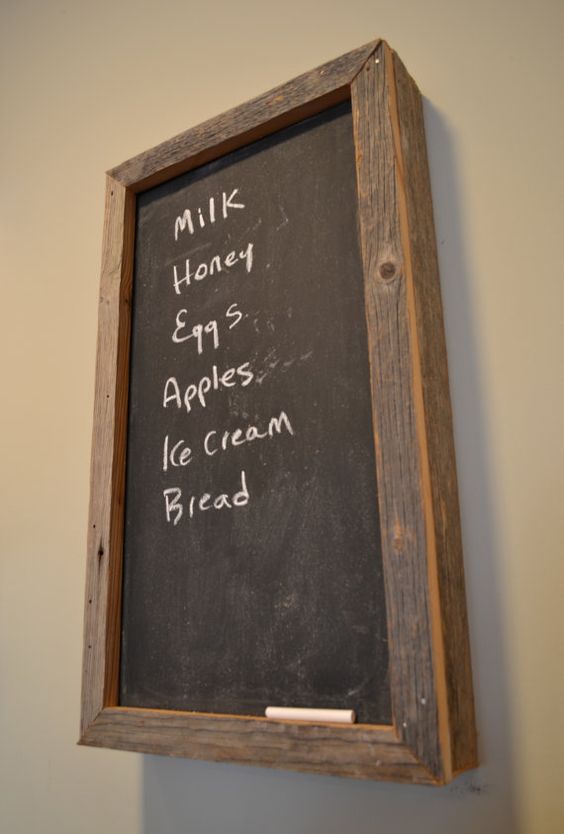 Milk
Honey
Eggs
Apples
Ice Cream
Bread